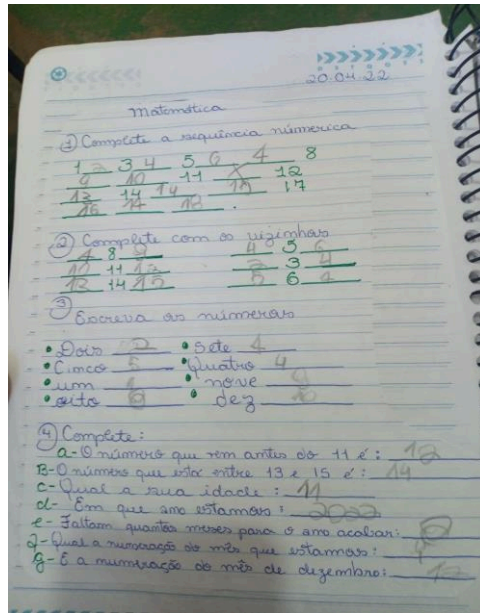 20.04.22
matemática
1) Complete a sequência númerica
1 2 3 4 5 6 4 8
9 10 11 12
13 14 17
16
2) Complete com os vizinhos
4 8 9 4 5 6
10 11 12 2 3 4
13 14 15 5 6 4
3)
Escreva os números
• Dois 2 • Sete 4
• Cinco 5 • Quatro 4
• um 1 • nove 9
• oito 8 • dez 10
4) Complete:
a- O número que vem antes do 11 é: 12
B- O número que está entre 13 e 15 é: 14
c- Qual a sua idade: 11
d- Em que ano estamos: 2022
e- Faltam quantos meses para o ano acabar: 8
f- Qual a numeração do mês que estamos: 4
g- E a numeração do mês de dezembro: 12